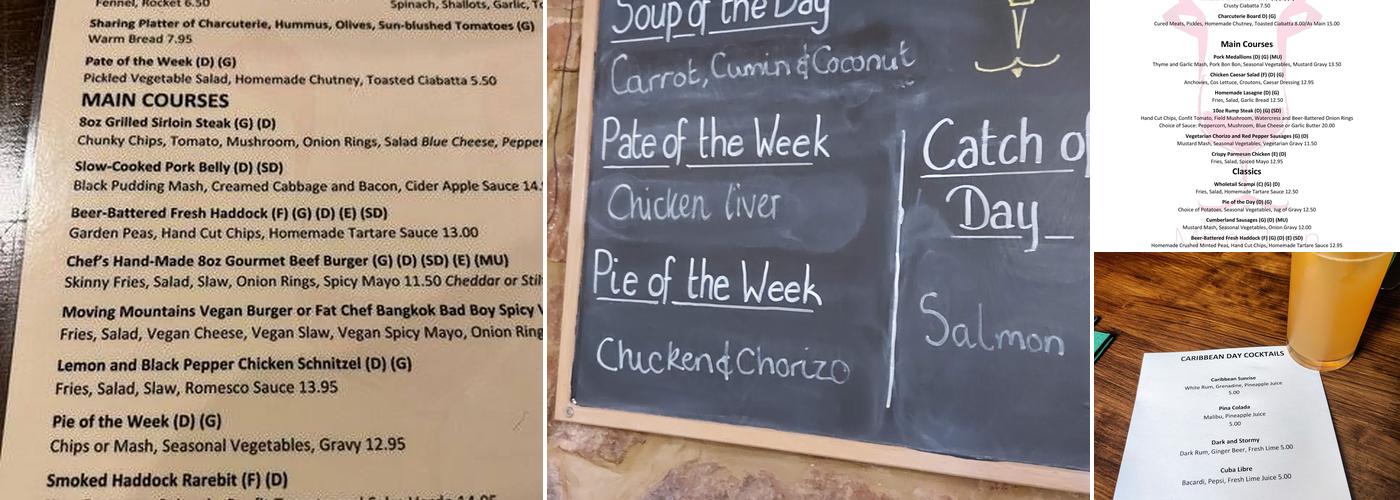 Fennel, Rocket 6.50
Spinach, Shallots, Garlic,
Sharing Platter of Charcuterie, Hummus, Olives, Sun-blushed Tomatoes (G)
Warm Bread 7.95
Pate of the Week (D) (G)
Pickled Vegetable Salad, Homemade Chutney, Toasted Ciabatta 5.50
MAIN COURSES
8oz Grilled Sirloin Steak (G) (D)
Chunky Chips, Tomato, Mushroom, Onion Rings, Salad Blue Cheese, Pepper
Slow-Cooked Pork Belly (D) (SD)
Black Pudding Mash, Creamed Cabbage and Bacon, Cider Apple Sauce 14.
Beer-Battered Fresh Haddock (F) (G) (D) (E) (SD)
Garden Peas, Hand Cut Chips, Homemade Tartare Sauce 13.00
Chef's Hand-Made 8oz Gourmet Beef Burger (G) (D) (SD) (E) (MU)
Skinny Fries, Salad, Slaw, Onion Rings, Spicy Mayo 11.50 Cheddar or Stil
Moving Mountains Vegan Burger or Fat Chef Bangkok Bad Boy Spicy
Fries, Salad, Vegan Cheese, Vegan Slaw, Vegan Spicy Mayo, Onion Ring
Lemon and Black Pepper Chicken Schnitzel (D) (G)
Fries, Salad, Slaw, Romesco Sauce 13.95
Pie of the Week (D) (G)
Chips or Mash, Seasonal Vegetables, Gravy 12.95
Smoked Haddock Rarebit (F) (D)
Soup of the Day
Carrot, Cumin & Coconut
Pate of the Week
Chicken liver
Pie of the Week
Chicken & Chorizo
Catch o
Day
Salmon
Crusty Ciabatta 7.50
Charcuterie Board D) (G)
Cured Meats, Pickles, Homemade Chutney, Toasted Ciabatta 8.00/As Main 15.00
Main Courses
Pork Medallions (D) (G) (MU)
Thyme and Garlic Mash, Pork Bon Bon, Seasonal Vegetables, Mustard Gravy 13.50
Chicken Caesar Salad (F) (D) (G)
Anchovies, Cos Lettuce, Croutons, Caesar Dressing 12.95
Homemade Lasagne (D) (G)
Fries, Salad, Garlic Bread 12.50
10oz Rump Steak (D) (G) (SD)
Hand Cut Chips, Confit Tomato, Field Mushroom, Watercress and Beer-Battered Onion Rings
Choice of Sauce: Peppercorn, Mushroom, Blue Cheese or Garlic Butter 20.00
Vegetarian Chorizo and Red Pepper Sausages (G) (D)
Mustard Mash, Seasonal Vegetables, Vegetarian Gravy 11.50
Crispy Parmesan Chicken (E) (D)
Fries, Salad, Spiced Mayo 12.95
Classics
Wholetail Scampi (C) (G) (D)
Fries, Salad, Homemade Tartare Sauce 12.50
Pie of the Day (D) (G)
Choice of Potatoes, Seasonal Vegetables, Jug of Gravy 12.50
Cumberland Sausages (G) (D) (MU)
Mustard Mash, Seasonal Vegetables, Onion Gravy 12.00
Beer-Battered Fresh Haddock (F) (G) (D) (E) (SD)
Homemade Crushed Minted Peas, Hand Cut Chips, Homemade Tartare Sauce 12.95
CARIBBEAN DAY COCKTAILS
Caribbean Sunrise
White Rum, Grenadine, Pineapple Juice
5.00
Pina Colada
Malibu, Pineapple Juice
5.00
Dark and Stormy
Dark Rum, Ginger Beer, Fresh Lime 5.00
Cuba Libre
Bacardi, Pepsi, Fresh Lime Juice 5.00